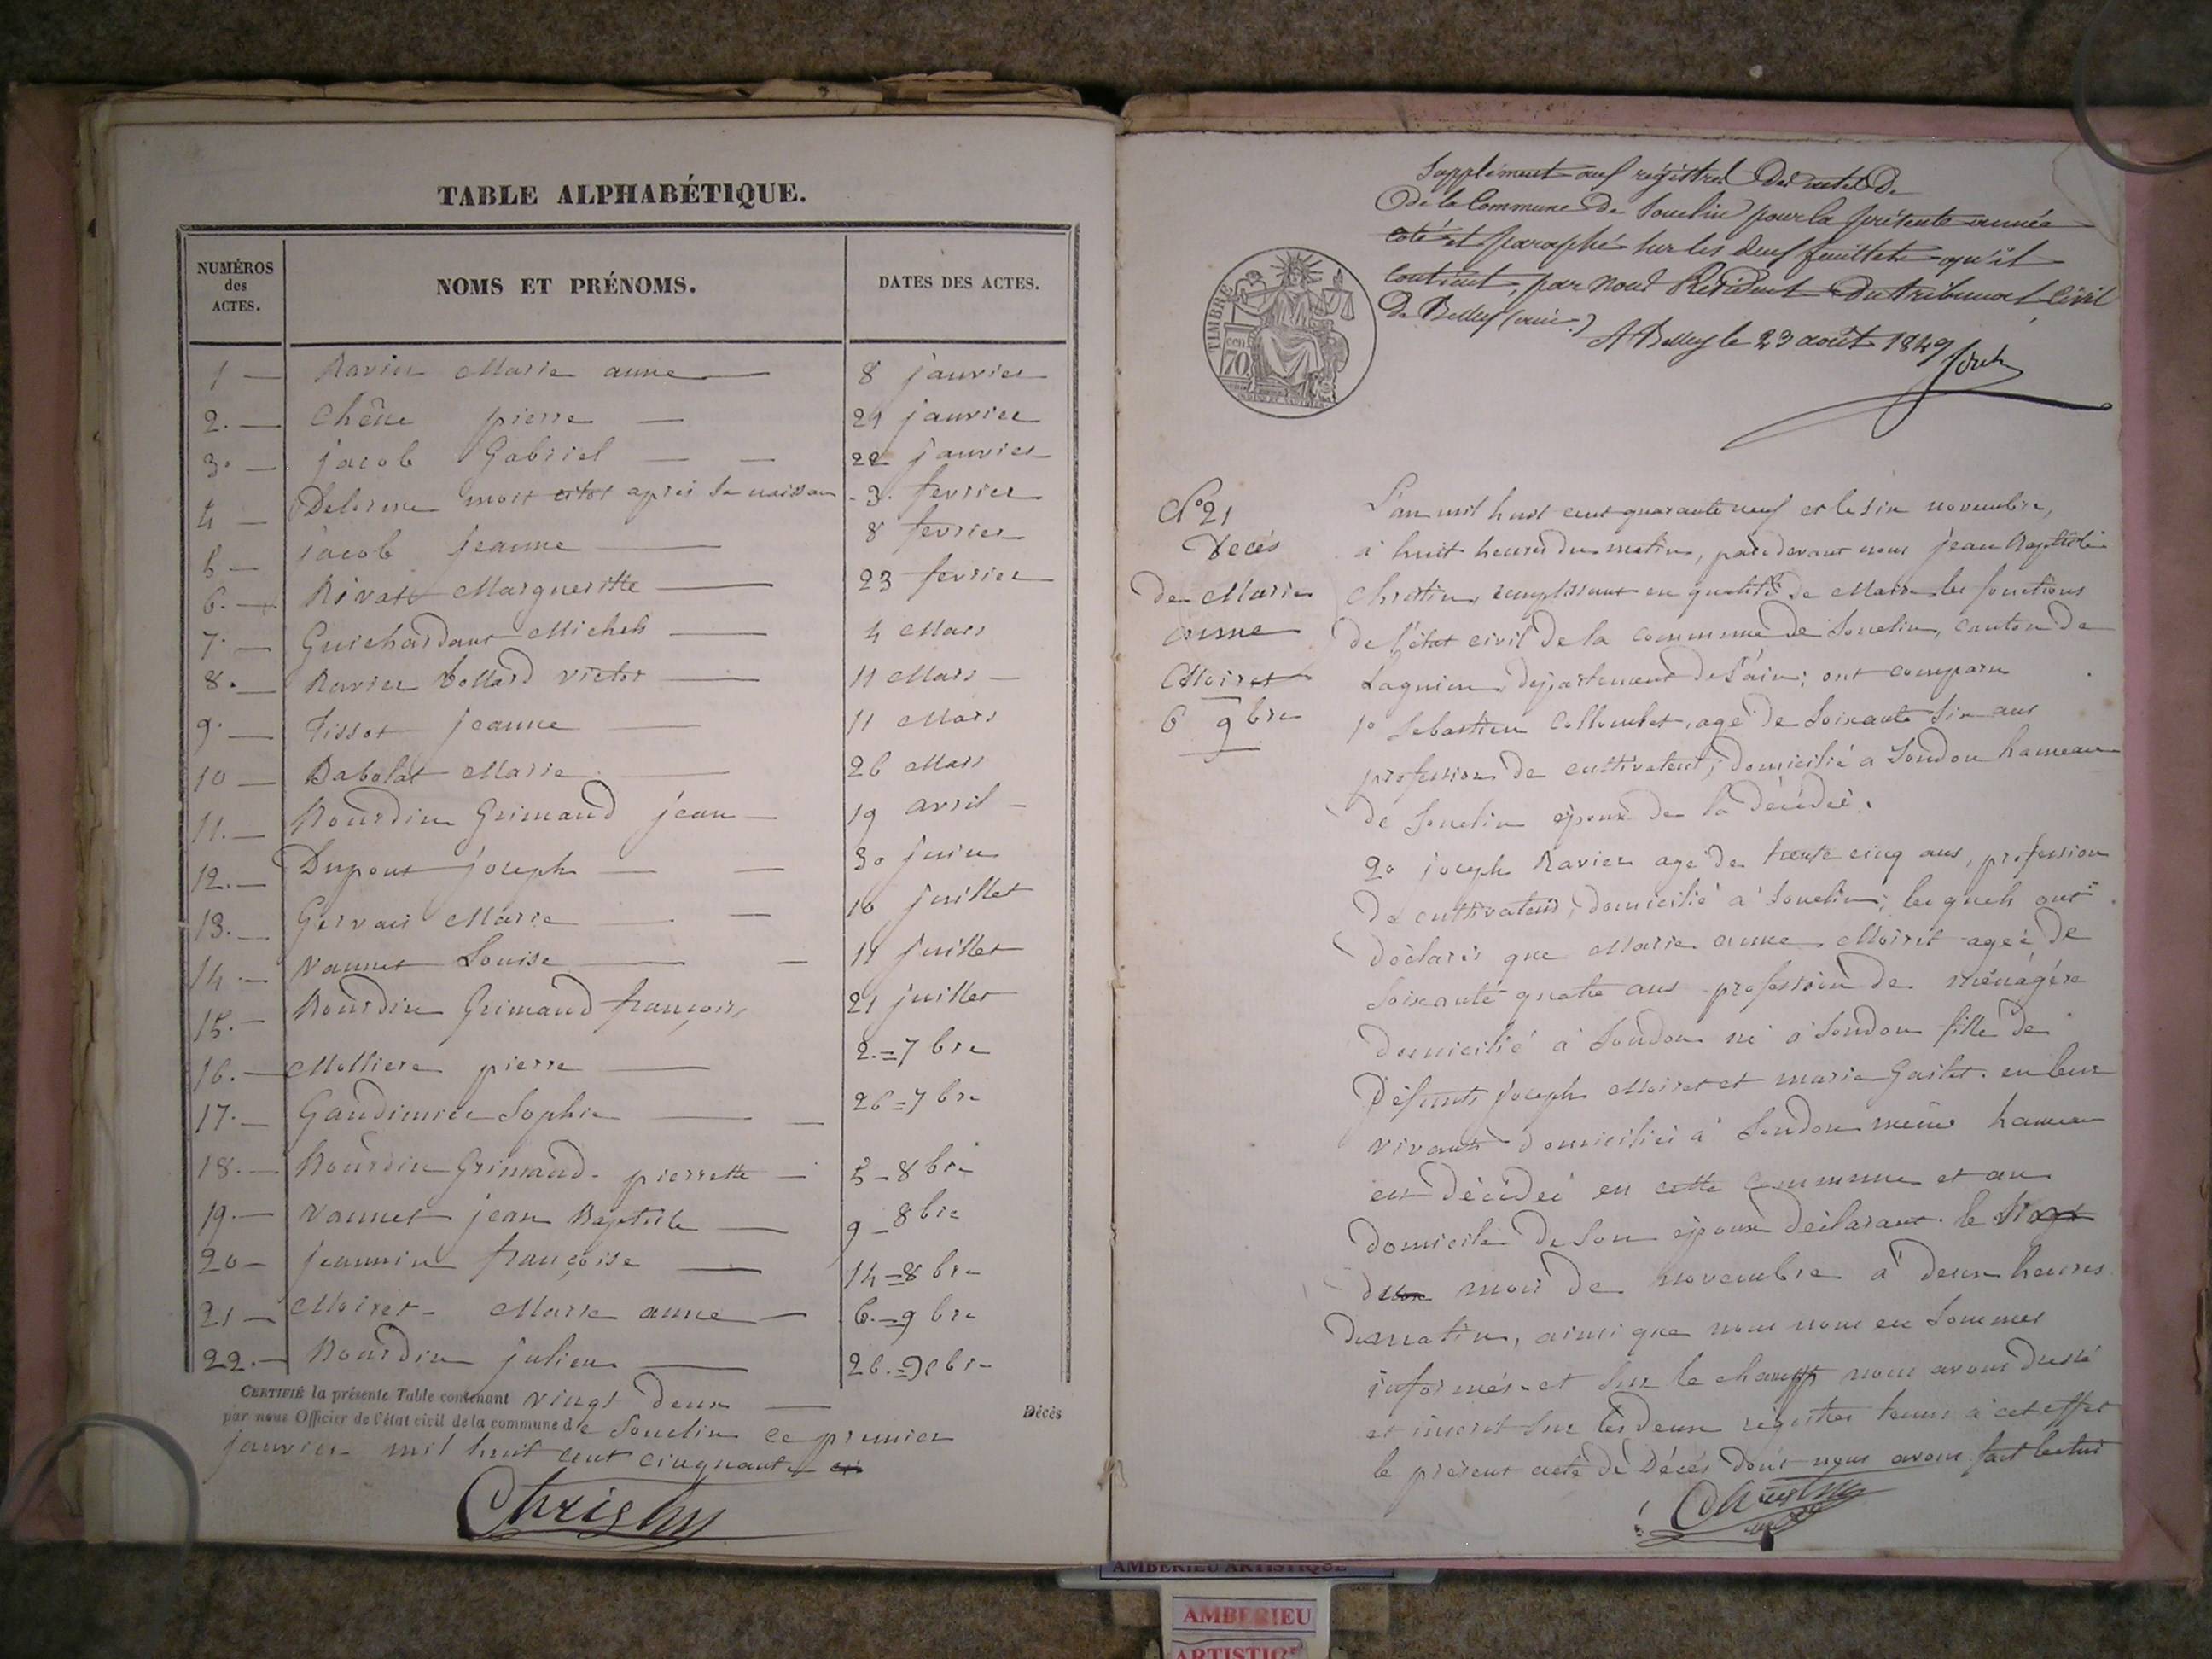 TABLE ALPHABÉTIQUE.
NUMÉROS des ACTES.
NOMS ET PRÉNOMS.
DATES DES ACTES.
1 — Ravier Marie anne — 8 janvier
2. — Chêne pierre — 21 janvier
3. — jacob Gabriel — — 22 janvier
4 — Delorme mort après sa naissan 3. fevrier
5 — jacob jeanne — 8 fevrier
6. — Margueritte — 23 fevrier
7. — Guichardant Michel — 4 Mars
8. — Ravier Victor — 11 Mars —
9. — Tissot jeanne — 11 Mars
10 — Babolat Marie — 26 Mars
11. — Bourdin Grimaud jean — 19 avril —
12. — Dupont joseph — — 30 juin
13. — Gervais Marie — — 10 juillet
14. — Vannet Louise — — 11 juillet
15. — Bourdin Grimaud françois 21 juillet
16. — Molliere pierre — 2. = 7 bre
17. — Sophie — — 26 = 7 bre
18. — Bourdin Grimaud pierrette — 5 - 8 bre
19. — Vannet jean Baptiste — 9 - 8 bre
20 — jeannin françoise — 14 = 8 bre
21 — Moiret — Marie anne — 6. — 9 bre
22. — Bourdin julien — 26.
CERTIFIÉ la présente Table contenant vingt deux — Décès
par nous Officier de l'état civil de la commune de Souclin ce premier
janvier mil huit cent cinquante
Christin
Supplément aux registres des actes de
de la Commune de Souclin pour la présente année
coté et paraphé sur les deux feuillets qu'il
contient, par nous Président du tribunal Civil
de Belley (ain.)
A Belley le 23 août 1849
TIMBRE
70
N° 21
Décès
de Marie
anne
Moiret
6 9 bre
L'an mil huit cent quarante neuf et le six novembre,
à huit heures du matin, pardevant nous jean Baptiste
Christin, remplissant en qualité de Maire les fonctions
de l'état civil de la commune de Souclin, canton de
Lagnieu, département de l'ain; ont comparu
1° Sebastien Collombet, agé de soixante six ans
profession de cultivateur, domicilié a Soudon hameau
de Souclin époux de la décédée.
2° joseph Ravier agé de trente cinq ans, profession
de cultivateur, domicilié à Souclin; lesquels ont
déclaré que Marie anne Moiret agée de
soixante quatre ans profession de ménagère
domicilié à Soudon né à Soudon fille de
défunts joseph Moiret et marie en leur
vivant domiciliés à Soudon même hameau
est décédée en cette commune et au
domicile de son époux déclarant. le six
du mois de novembre à deux heures
du matin, ainsi que nous nous en sommes
informés et sur le champ nous avons dressé
et inscrit sur les deux registres tenus à cet effet
le présent acte de Décès dont nous avons fait lecture
Christin
AMBERIEU ARTISTIQUE
AMBERIEU
ARTISTIQUE